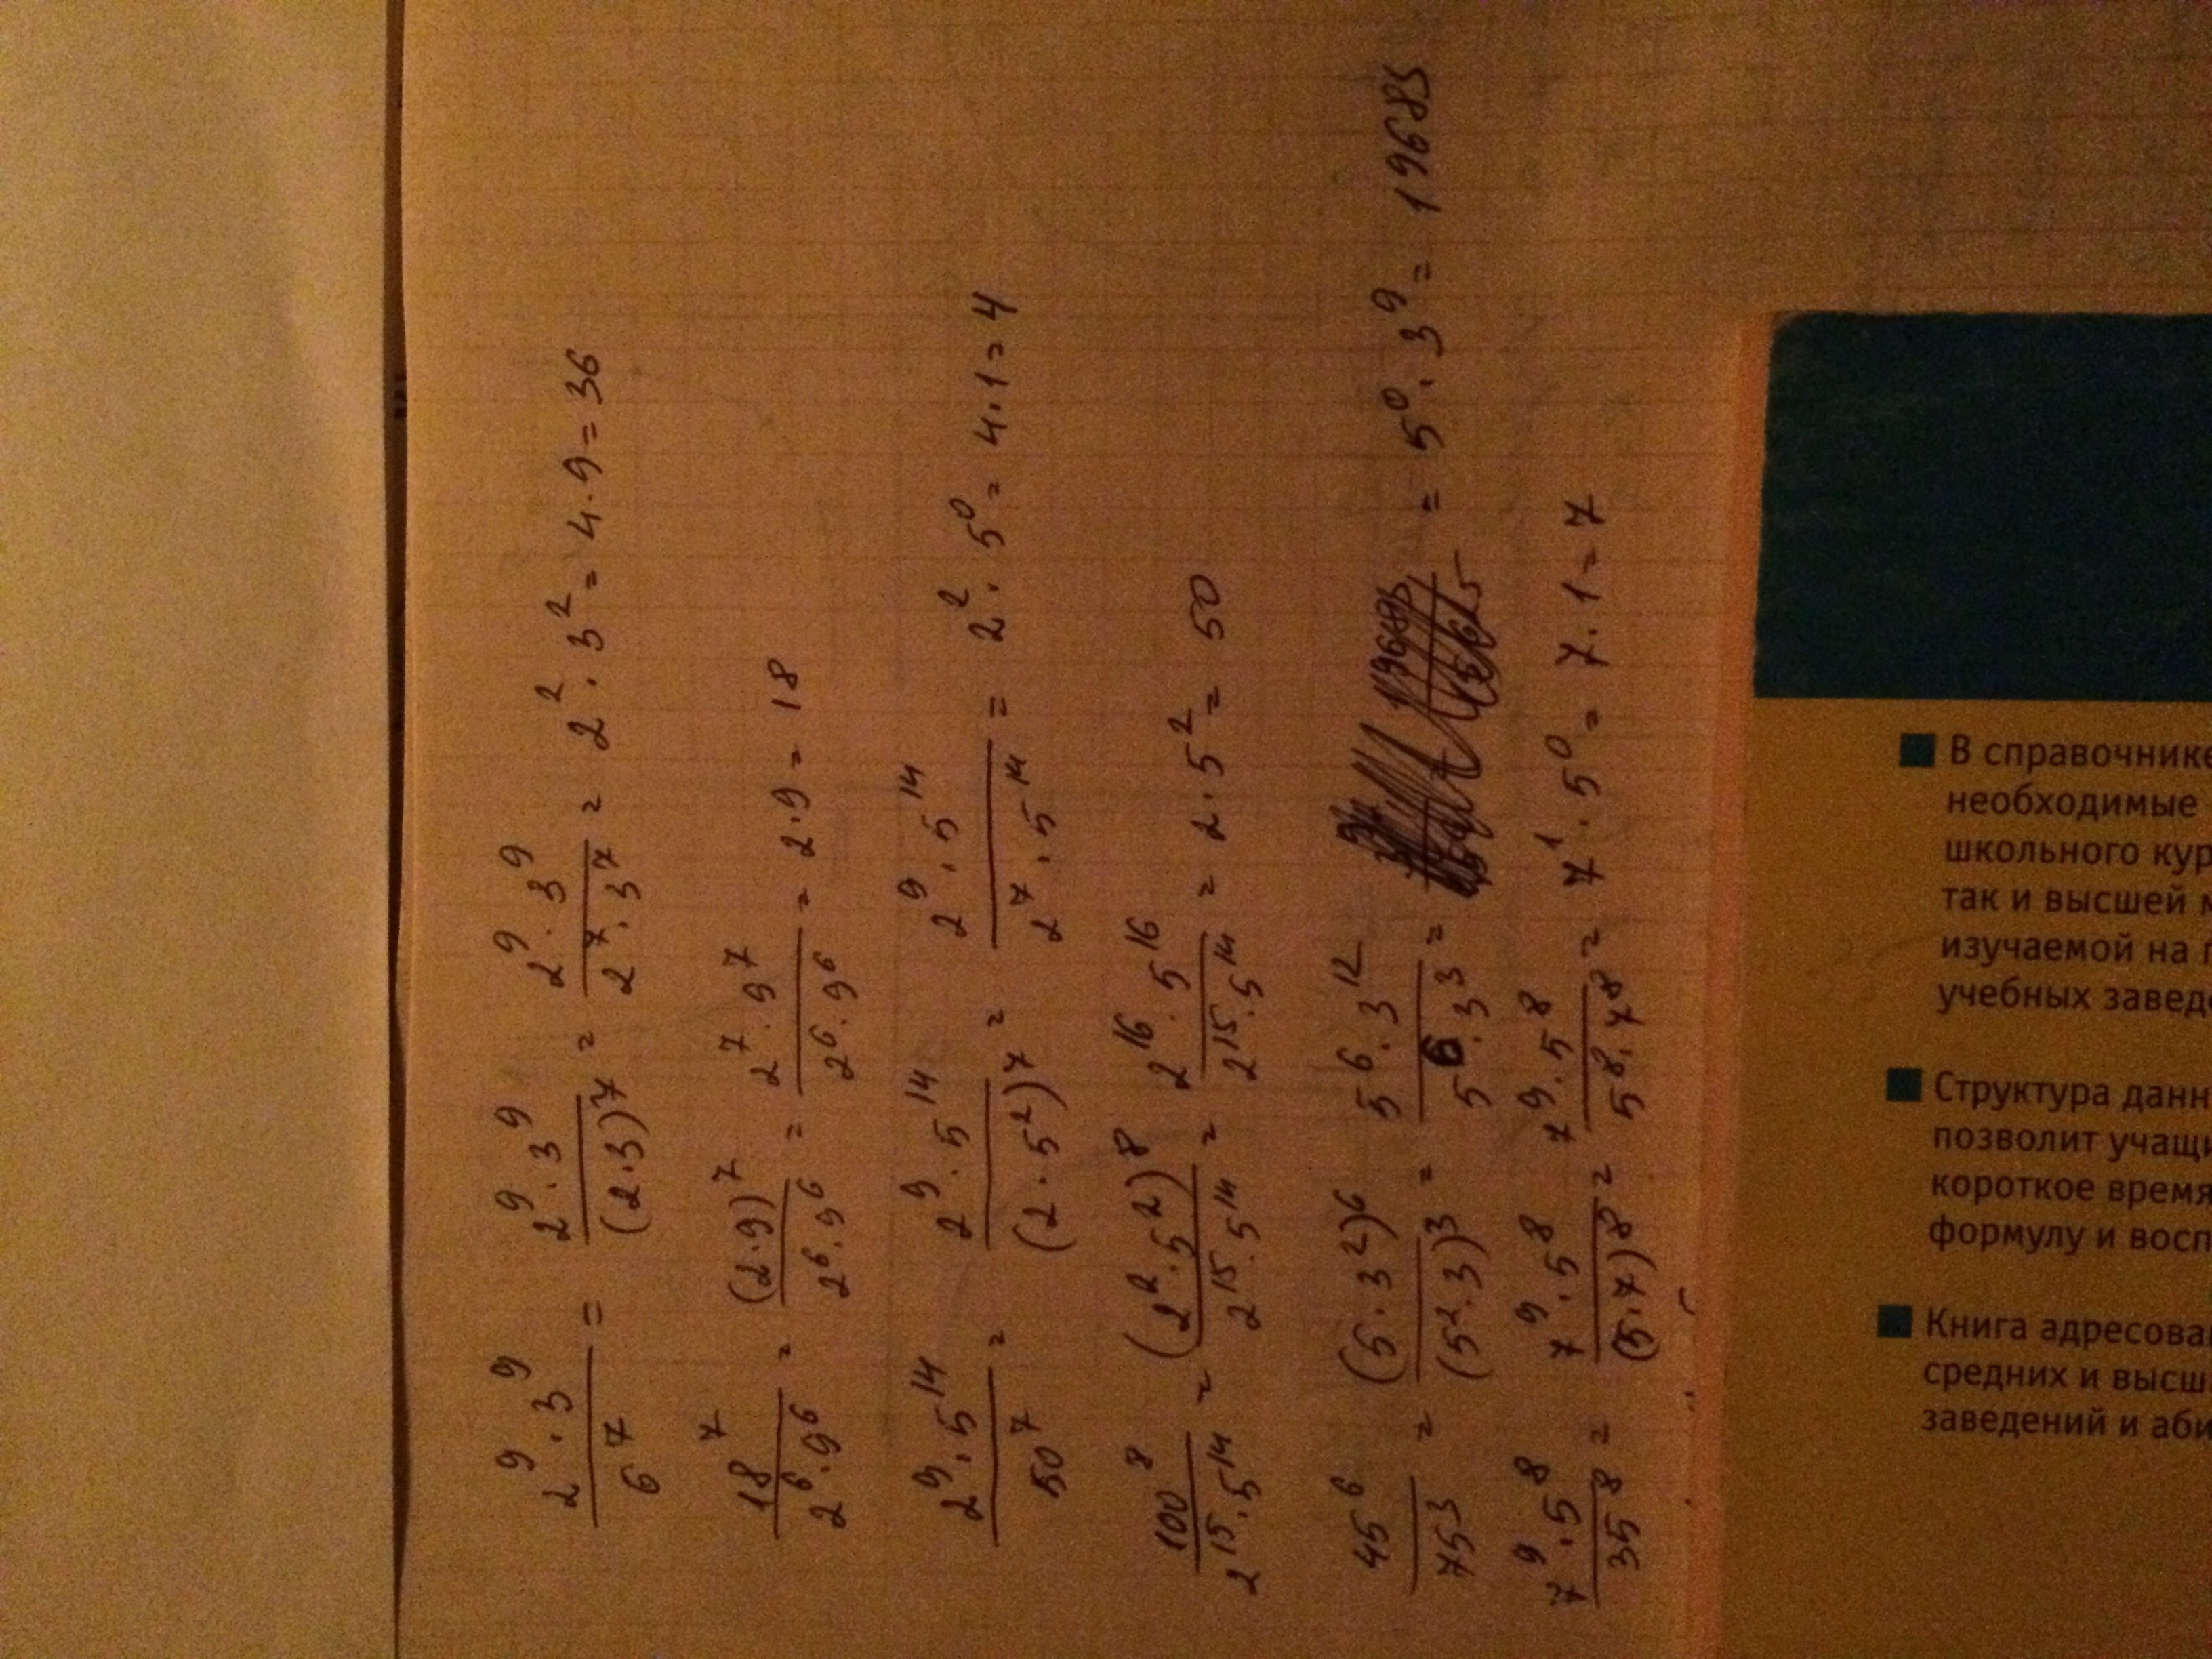 (2⁹·3⁹)/6⁷ = (2⁹·3⁹)/(2·3)⁷ = (2⁹·3⁹)/(2⁷·3⁷) = 2²·3² = 4·9 = 36
18⁷/(2⁶·9⁶) = (2·9)⁷/(2⁶·9⁶) = (2⁷·9⁷)/(2⁶·9⁶) = 2·9 = 18
(2⁹·5¹⁴)/50⁷ = (2⁹·5¹⁴)/(2·5²)⁷ = (2⁹·5¹⁴)/(2⁷·5¹⁴) = 2²·5⁰ = 4·1 = 4
100⁸/(2¹⁵·5¹⁴) = (2²·5²)⁸/(2¹⁵·5¹⁴) = (2¹⁶·5¹⁶)/(2¹⁵·5¹⁴) = 2·5² = 50
45⁶/75³ = (5·3²)⁶/(5²·3)³ = (5⁶·3¹²)/(5⁶·3³) = = 5⁰·3⁹ = 19685
(7⁹·5⁸)/35⁸ = (7⁹·5⁸)/(5·7)⁸ = (7⁹·5⁸)/(5⁸·7⁸) = 7¹·5⁰ = 7·1 = 7
В справочнике
необходимые
школьного кур
так и высшей м
изучаемой на п
учебных завед
Структура данн
позволит учащи
короткое время
формулу и восп
Книга адресова
средних и высш
заведений и аби